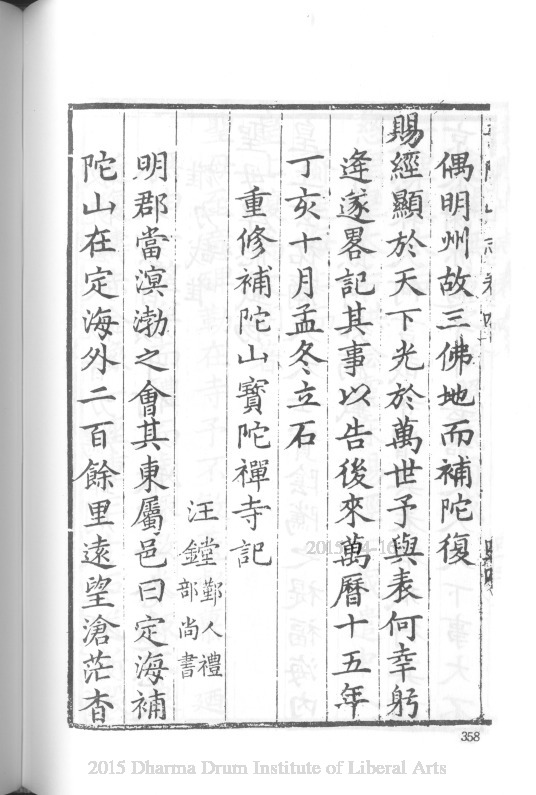 偶明州故三佛地而補陀復
賜經顯於天下光於萬世予與表何幸躬
逢遂畧記其事以告後來萬曆十五年
丁亥十月孟冬立石
重修補陀山寶陀禪寺記
汪鏜鄞人禮部尚書
明郡當溟渤之會其東屬邑曰定海補
陀山在定海外二百餘里遠望滄茫杳
358
2015 Dharma Drum Institute of Liberal Arts